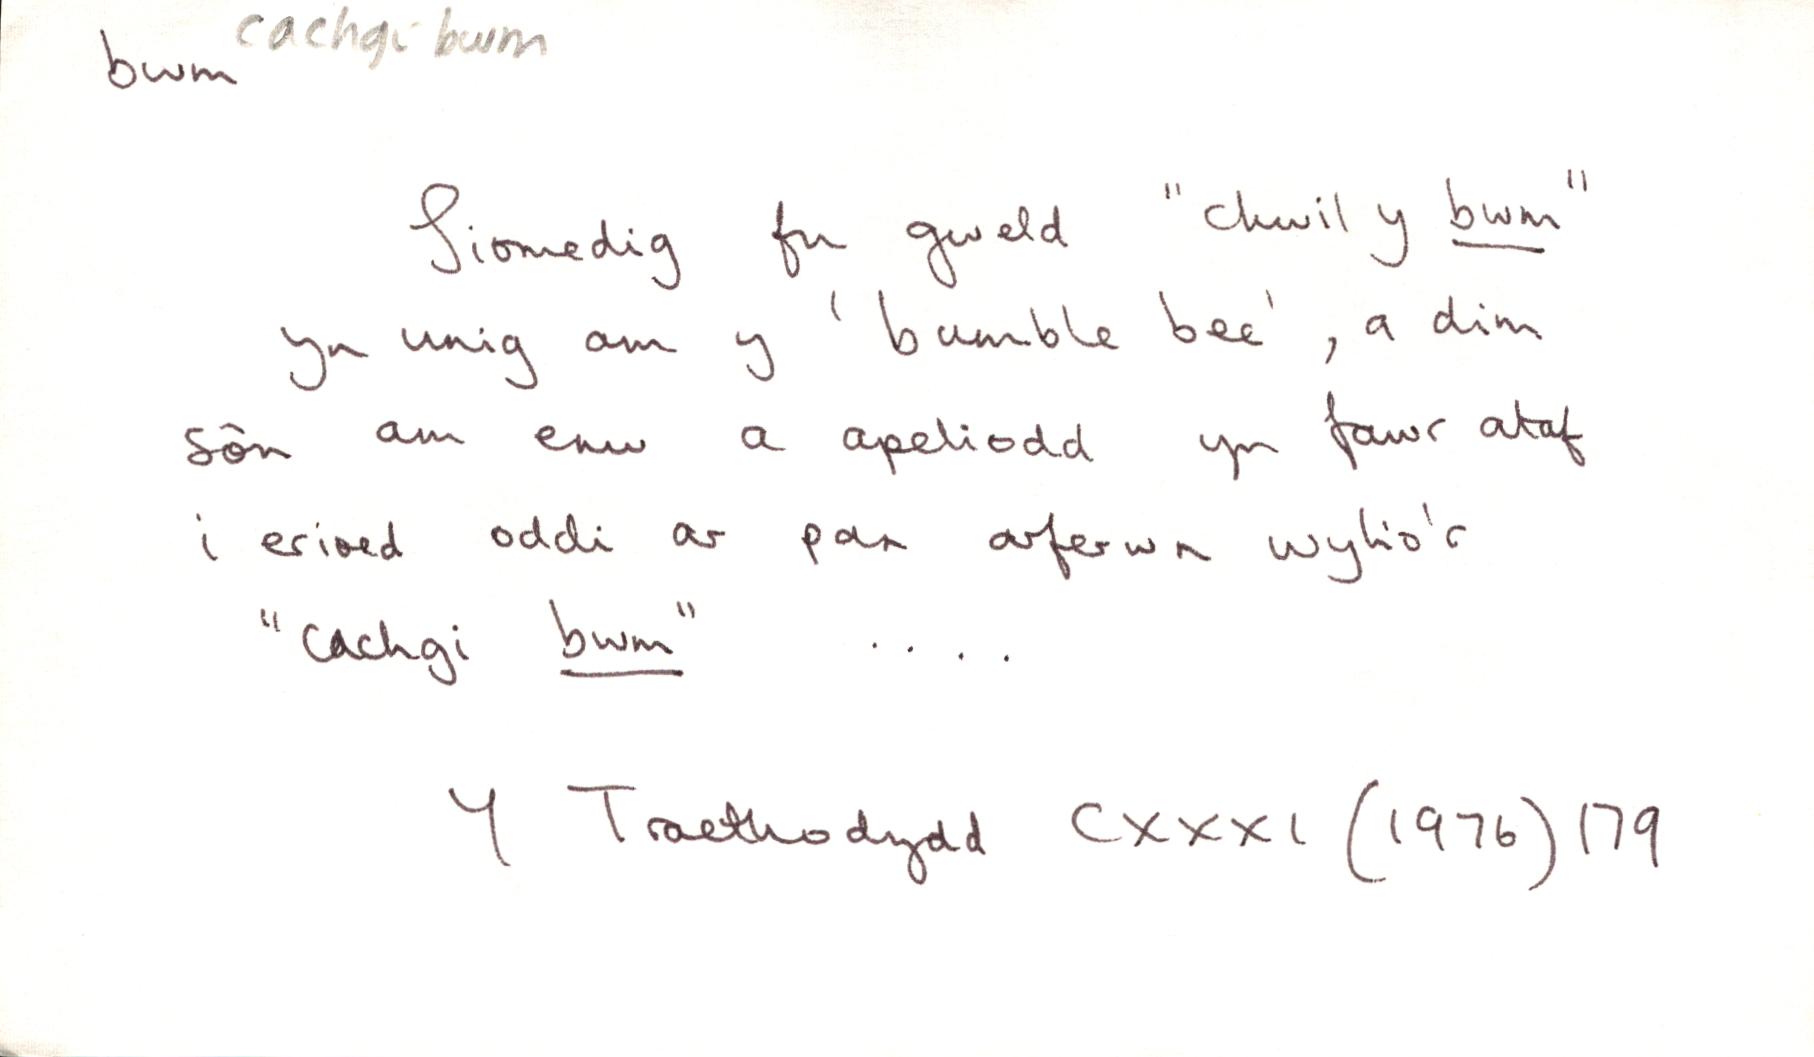 cachgi bwm
bwm
Siomedig fu gweld "chwil y bwm"
yn unig am y 'bumble bee', a dim
sôn am enw a apeliodd yn fawr ataf
i erioed oddi ar pan arferwn wylio'r
"cachgi bwm" ....
Y Traethodydd CXXXI (1976) 179